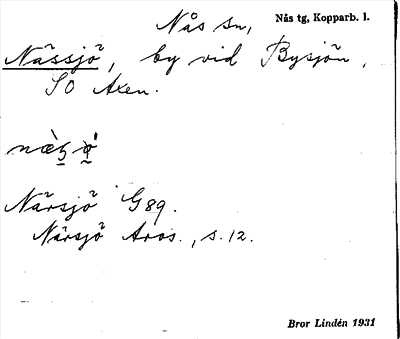 Nås sn,
Nås tg, Kopparb. l.
Nässjö, by vid Bysjön,
SO Axen.
Närsjö G89.
Närsjö Aros., s. 12.
Bror Lindén 1931